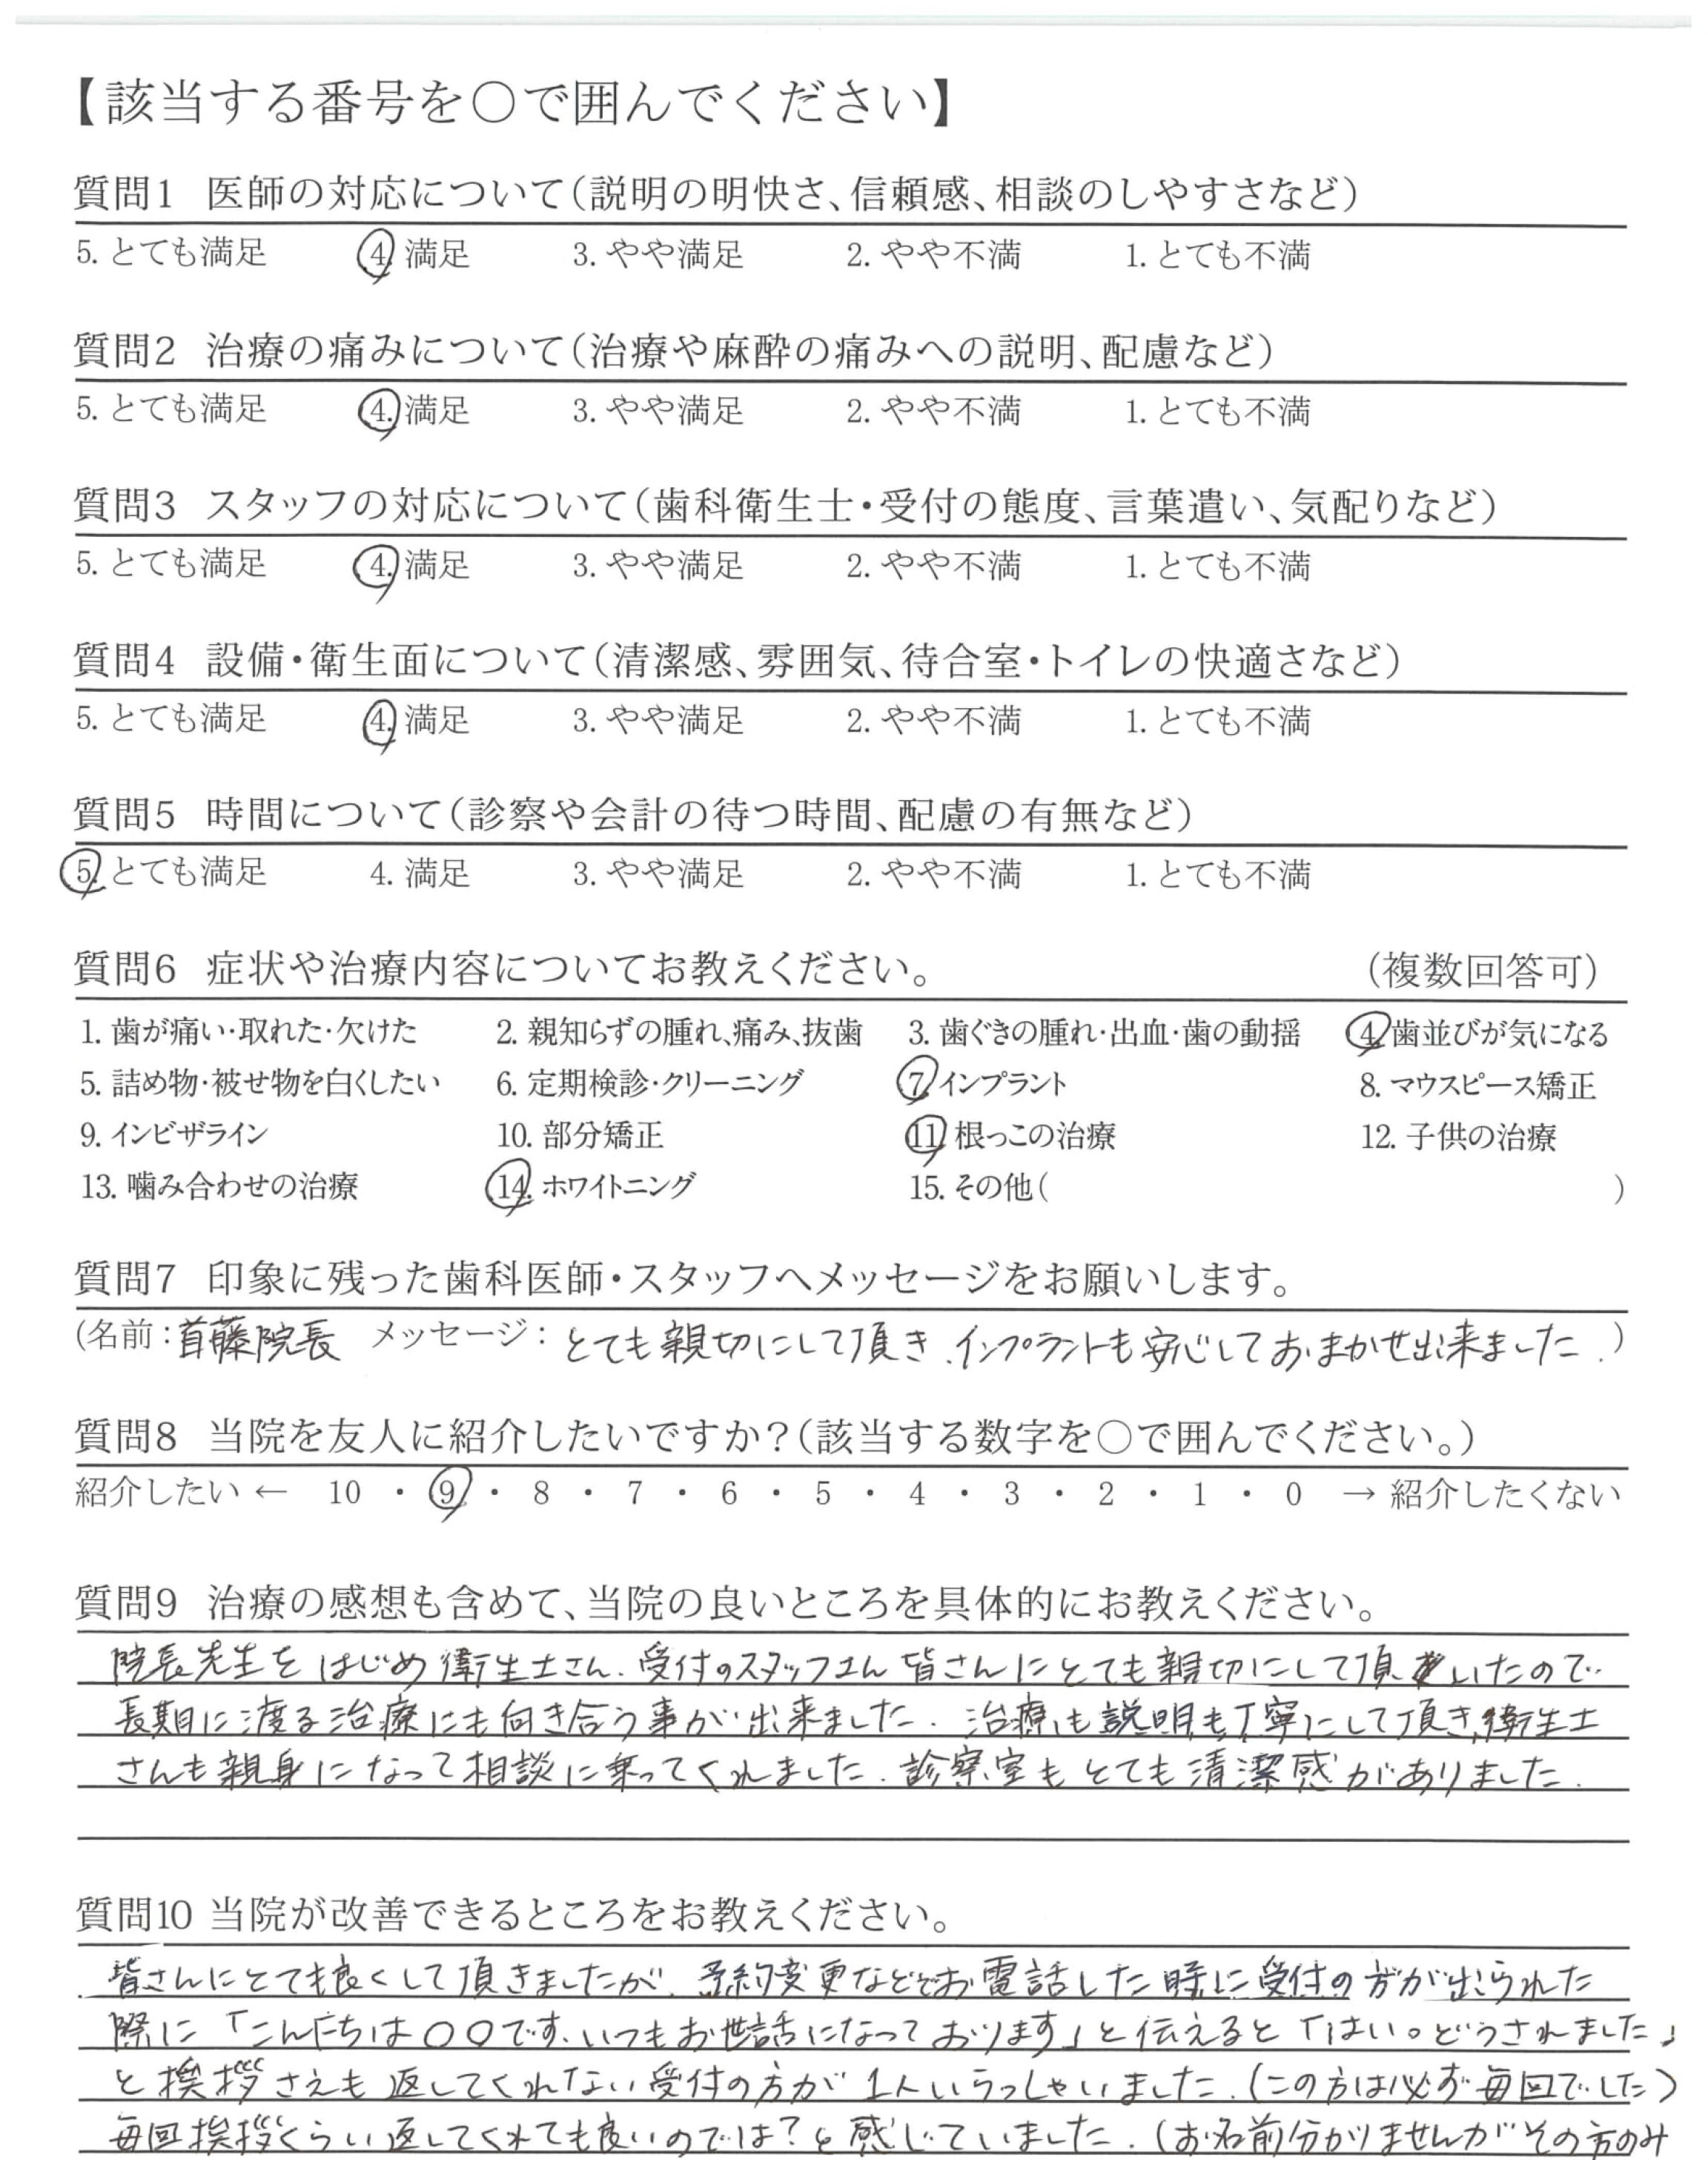 【該当する番号を〇で囲んでください】
質問1 医師の対応について（説明の明快さ、信頼感、相談のしやすさなど）
5. とても満足 4. 満足 3. やや満足 2. やや不満 1. とても不満
質問2 治療の痛みについて（治療や麻酔の痛みへの説明、配慮など）
5. とても満足 4. 満足 3. やや満足 2. やや不満 1. とても不満
質問3 スタッフの対応について（歯科衛生士・受付の態度、言葉遣い、気配りなど）
5. とても満足 4. 満足 3. やや満足 2. やや不満 1. とても不満
質問4 設備・衛生面について（清潔感、雰囲気、待合室・トイレの快適さなど）
5. とても満足 4. 満足 3. やや満足 2. やや不満 1. とても不満
質問5 時間について（診察や会計の待つ時間、配慮の有無など）
5. とても満足 4. 満足 3. やや満足 2. やや不満 1. とても不満
質問6 症状や治療内容についてお教えください。 （複数回答可）
1. 歯が痛い・取れた・欠けた 2. 親知らずの腫れ、痛み、抜歯 3. 歯ぐきの腫れ・出血・歯の動揺 4. 歯並びが気になる
5. 詰め物・被せ物を白くしたい 6. 定期検診・クリーニング 7. インプラント 8. マウスピース矯正
9. インビザライン 10. 部分矯正 11. 根っこの治療 12. 子供の治療
13. 噛み合わせの治療 14. ホワイトニング 15. その他（ ）
質問7 印象に残った歯科医師・スタッフへメッセージをお願いします。
（名前：首藤院長 メッセージ：とても親切にして頂き、インプラントも安心しておまかせ出来ました。）
質問8 当院を友人に紹介したいですか？（該当する数字を〇で囲んでください。）
紹介したい ← 10 ・ 9 ・ 8 ・ 7 ・ 6 ・ 5 ・ 4 ・ 3 ・ 2 ・ 1 ・ 0 → 紹介したくない
質問9 治療の感想も含めて、当院の良いところを具体的にお教えください。
院長先生をはじめ衛生士さん、受付のスタッフさん皆さんにとても親切にして頂いたので
長期に渡る治療にも向き合う事が出来ました。治療も説明も丁寧にして頂き、衛生士
さんも親身になって相談に乗ってくれました。診察室もとても清潔感がありました。
質問10 当院が改善できるところをお教えください。
皆さんにとても良くして頂きましたが、予約変更などでお電話した時に受付の方が出られた
際に「こんにちは〇〇です、いつもお世話になっております」と伝えると「はい。どうされました」
と挨拶さえも返してくれない受付の方が1人いらっしゃいました。（この方は必ず毎回でした）
毎回挨拶くらい返してくれても良いのでは？と感じていました。（お名前分かりませんがその方のみ